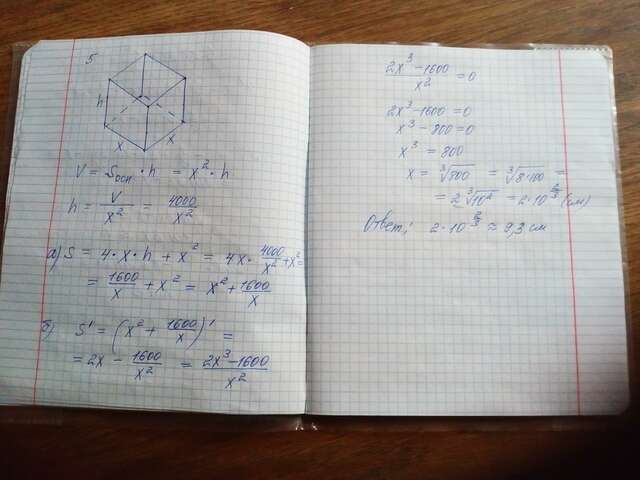 5
h
x x
V = Sосн · h = x² · h
h = V/x² = 4000/x²
а) S = 4·x·h + x² = 4x · 4000/x² + x² =
= 1600/x + x² = x² + 1600/x
б) S' = (x² + 1600/x)' =
= 2x - 1600/x² = 2x³-1600/x²
2x³-1600/x² = 0
2x³-1600 = 0
x³ - 800 = 0
x³ = 800
x = ∛800 = ∛8·100 =
= 2∛10² = 2·10^(2/3) (см)
Ответ: 2·10^(2/3) ≈ 9,3 см